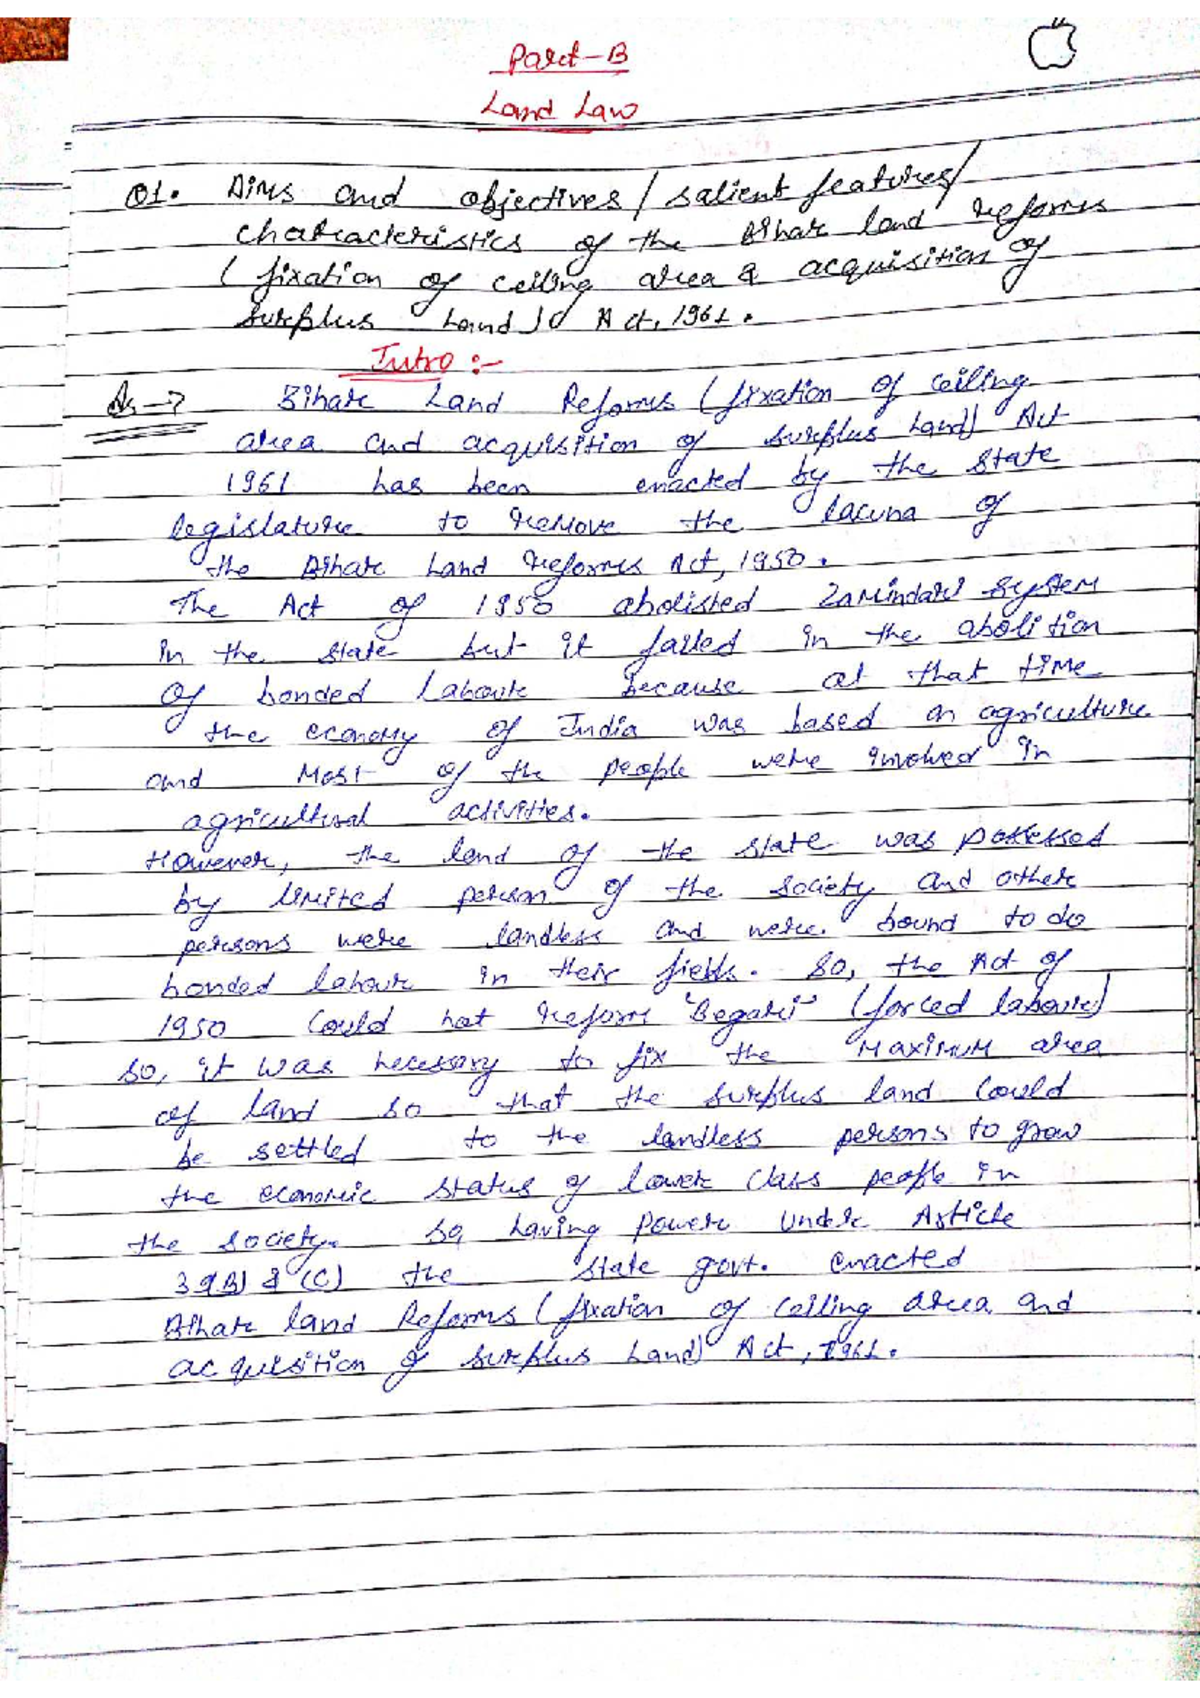 Part-B
Land Law
Q1. Aims and objectives/salient features/
characteristics of the Bihar land reforms
(fixation of ceiling area & acquisition of
surplus Land) Act, 1961.
Intro:-
Ans→ Bihar Land Reforms (fixation of ceiling
area and acquisition of surplus Land) Act
1961 has been enacted by the state
legislature to remove the lacuna of
the Bihar Land reforms Act, 1950.
The Act of 1950 abolished Zamindari system
in the state but it failed in the abolition
of bonded labour because at that time
the economy of India was based on agriculture
and Most of the people were involved in
agricultural activities.
However, the land of the state was possessed
by limited person of the society and other
persons were landless and were bound to do
bonded labour in their fields. So, the Act of
1950 could not reform "Begari" (forced labour)
so, it was necessary to fix the maximum area
of land so that the surplus land could
be settled to the landless persons to grow
the economic status of lower class people in
the society. So, having power under Article
39(B) & (C) the state govt. enacted
Bihar land Reforms (fixation of ceiling area and
acquisition of surplus Land) Act, 1961.